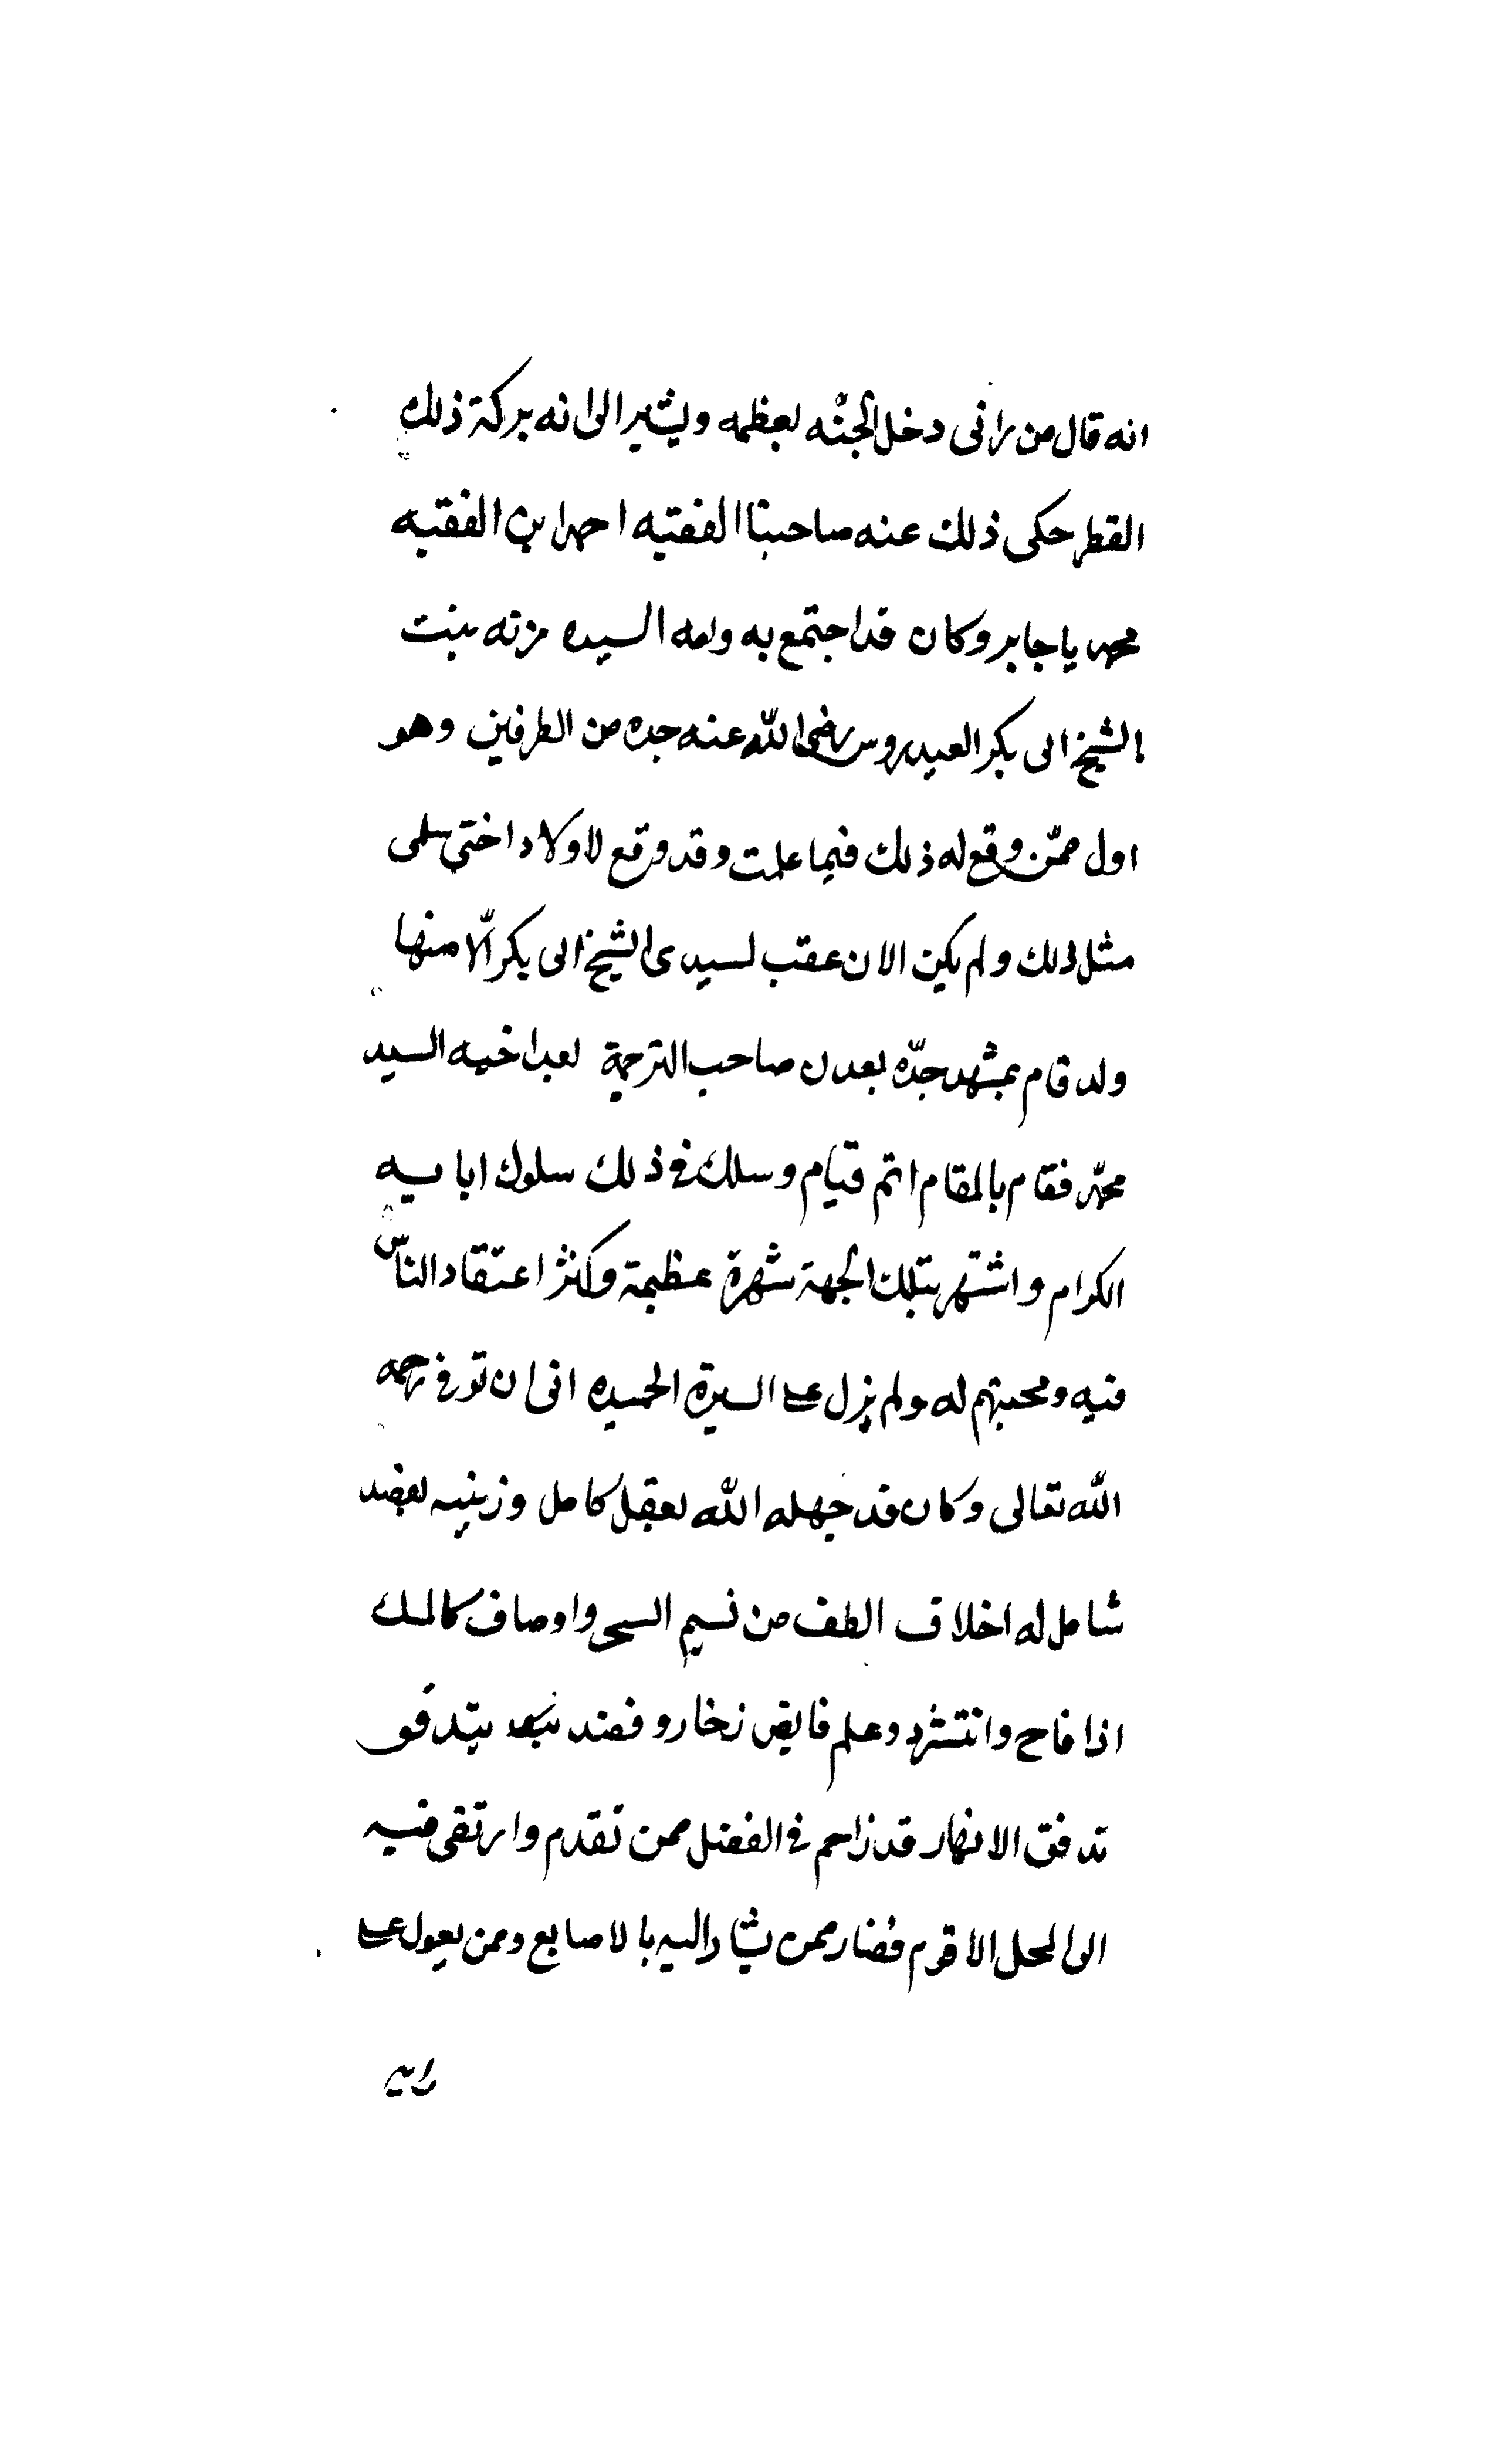 انه قال من رانى دخل الجنّه يعظمه ويشير الى انه بركة ذلك
القطر حكى ذلك عنه صاحبنا الفقيه احمد ابن الفقيه
محمد باجابر وكان قد اجتمع به وامه السيده مزنه بنت
الشيخ ابى بكر العيدروس رضى اللّه عنه جده من الطرفين وهو
اول ممّن وقع له ذلك فيما علمت وقد وقع لاولاد اختى سلمى
مثل ذلك ولم يكن الان عقب لسيدى الشيخ ابى بكر الّا منها
ولد قام بمشهد جدّه بعدن صاحب الترجمة بعد اخيه السيد
محمّد فقام بالمقام اتم قيام وسلك فى ذلك سلوك ابايه
الكرام واشتهر بتلك الجهة شهرة عظيمة وكثر اعتقاد الناس
فيه ومحبتهم له ولم يزل على السيرة الحميده الى ان توفى رحمه
اللّه تعالى وكان قد جمله اللّه بعقل كامل وزينه بفضل
شامل له اخلاق الطف من نسيم السحر واوصاف كالمسك
اذا فاح وانتشر وعلم فايض زخار وفضل يتدفق
تدفق الانهار قد زاحم فى الفضل ممن تقدم وارتقى فيه
الى المحل الاقوم فصار ممن يشار اليه بالاصابع وممن يعول على
رايه